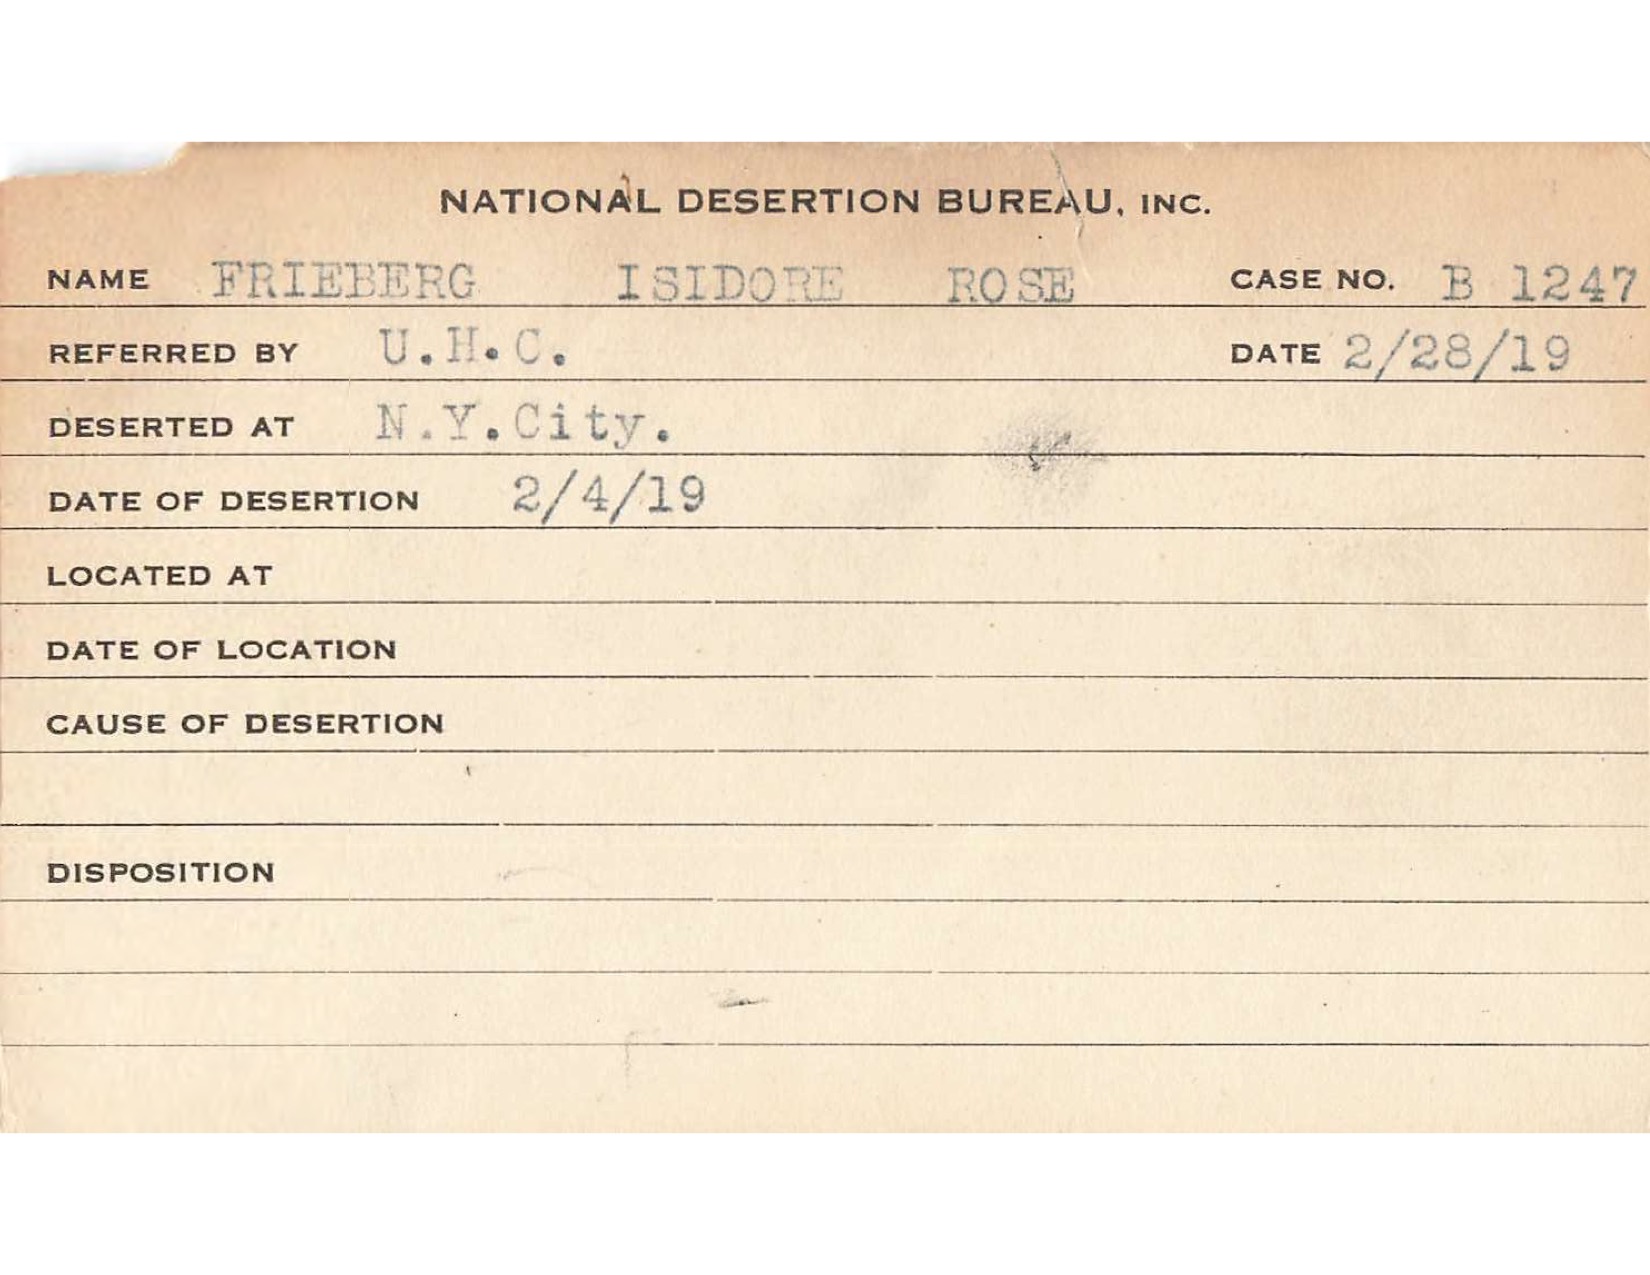 NATIONAL DESERTION BUREAU, INC.
NAME FRIEBERG ISIDORE ROSE CASE NO. B 1247
REFERRED BY U.H.C. DATE 2/28/19
DESERTED AT N.Y.City.
DATE OF DESERTION 2/4/19
LOCATED AT
DATE OF LOCATION
CAUSE OF DESERTION
DISPOSITION